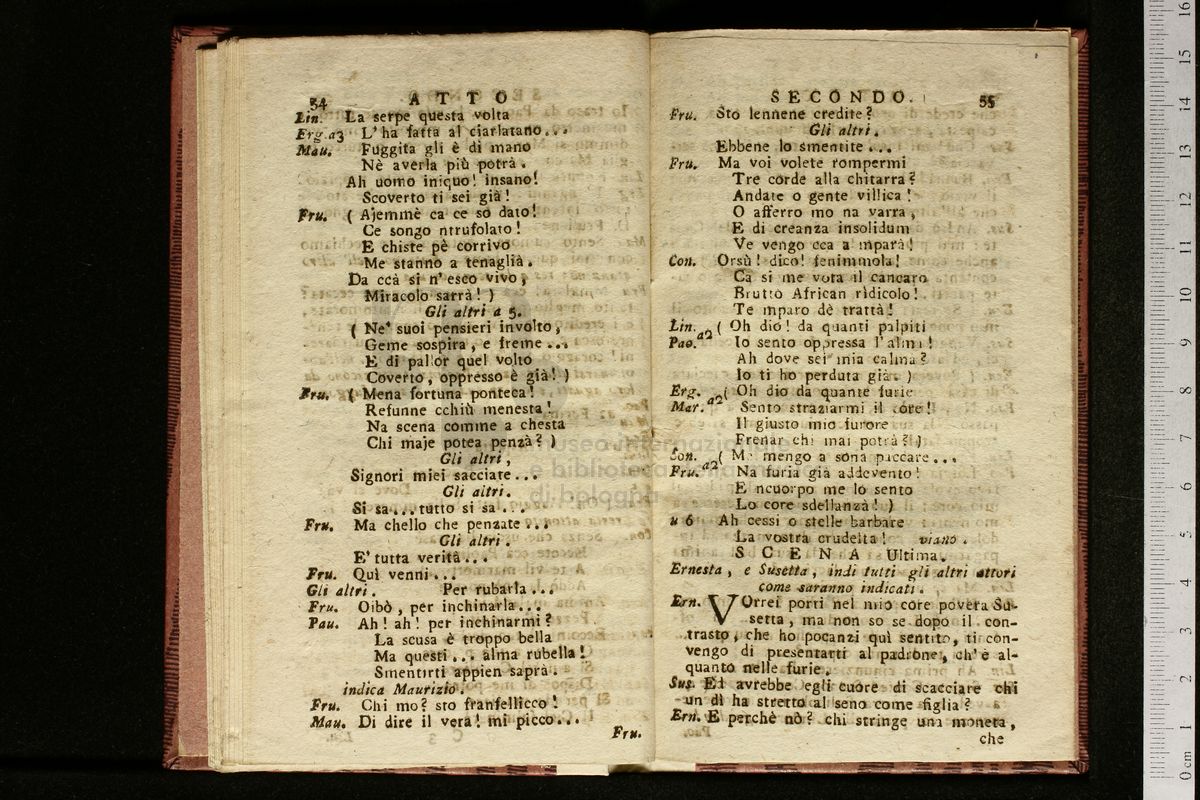 54 ATTO
Lin. La serpe questa volta
Erg. a3 L'ha fatta al ciarlatano...
Mau. Fuggita gli è di mano
Nè averla più potrà.
Ah uomo iniquo! insano!
Scoverto ti sei già!
Fru. ( Ajemmè ca ce so dato!
Ce songo ntrufolato!
E chiste pè corrivo
Me stanno a tenaglià.
Da ccà si n'esco vivo,
Miracolo sarrà! )
Gli altri a 5.
( Ne' suoi pensieri involto,
Geme sospira, e freme...
E di pallor quel volto
Coverto, oppresso è già! )
Fru. ( Mena fortuna ponteca!
Refunne cchiù menesta!
Na scena comme a chesta
Chi maje potea penzà? )
Gli altri,
Signori miei sacciate...
Gli altri.
Si sa... tutto si sa...
Fru. Ma chello che penzate...
Gli altri.
E' tutta verità...
Fru. Quì venni...
Gli altri. Per rubarla...
Fru. Oibò, per inchinarla...
Pau. Ah! ah! per inchinarmi?
La scusa è troppo bella
Ma questi... alma rubella!
Smentirti appien saprà.
indica Maurizio.
Fru. Chi mo? sto franfellicco!
Mau. Di dire il vera! mi picco...
Fru.
SECONDO. 55
Fru. Sto lennene credite?
Gli altri.
Ebbene lo smentite...
Fru. Ma voi volete rompermi
Tre corde alla chitarra?
Andate o gente villica!
O afferro mo na varra,
E di creanza insolidum
Ve vengo cca a mparà!
Con. Orsù! dico! fenimmola!
Ca si me vota il cancaro
Brutto African ridicolo!
Te mparo dè trattà!
Lin. a2 ( Oh dio! da quanti palpiti
Pao. Io sento oppressa l'alma!
Ah dove sei mia calma?
Io ti ho perduta già. )
Erg. a2 ( Oh dio da quante furie
Mar. Sento straziarmi il core!
Il giusto mio furore
Frenar chi mai potrà? )
Con. a2 ( Me mengo a sona piccare...
Fru. Na furia già addevento!
E ncuorpo me lo sento
Lo core sdellanzà! )
a 6 Ah cessi o stelle barbare
La vostra crudeltà! viano.
SCENA Ultima.
Ernesta, e Susetta, indi tutti gli altri attori
come saranno indicati.
Ern. VOrrei porti nel mio core povera Su-
setta, ma non so se dopo il con-
trasto, che ho pocanzi quì sentito, ti con-
vengo di presentarti al padrone, ch'è al-
quanto nelle furie.
Sus. Ed avrebbe egli cuore di scacciare chi
un dì ha stretto al seno come figlia?
Ern. E perchè nò? chi stringe una moneta,
che